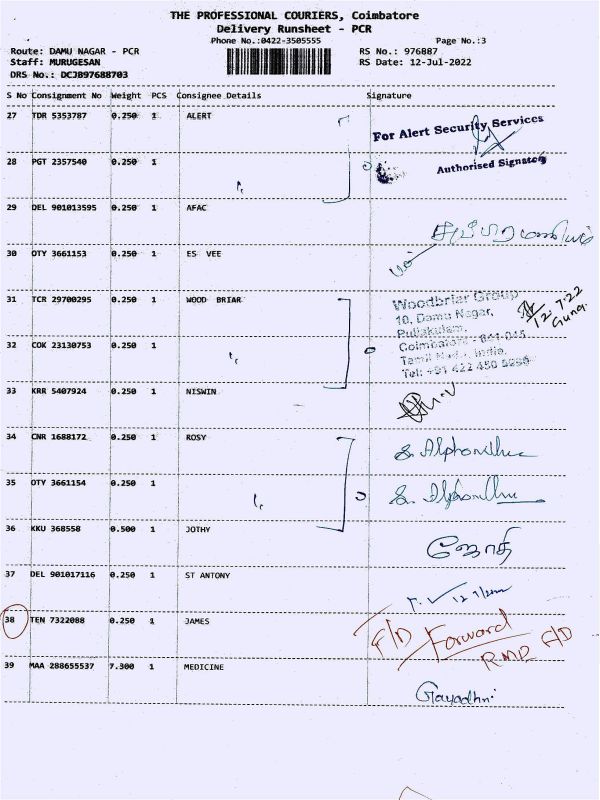 THE PROFESSIONAL COURIERS, Coimbatore
Delivery Runsheet - PCR
Phone No.:0422-3505555 Page No.:3
Route: DAMU NAGAR - PCR RS No.: 976887
Staff: MURUGESAN RS Date: 12-Jul-2022
DRS No.: DCJB97688703
S No Consignment No Weight PCS Consignee Details Signature
27 TDR 5353787 0.250 1 ALERT
For Alert Security Services
28 PGT 2357540 0.250 1
Authorised Signatory
29 DEL 901013595 0.250 1 AFAC
30 OTY 3661153 0.250 1 ES VEE
31 TCR 29700295 0.250 1 WOOD BRIAR
Woodbriar Group
10, Damu Nagar,
Puliakulam,
12.7.22
Guna.
32 COK 23130753 0.250 1
Coimbatore - 641 045
Tamil Nadu, India.
Tel: +91 422 450
33 KRR 5407924 0.250 1 NISWIN
34 CNR 1688172 0.250 1 ROSY
35 OTY 3661154 0.250 1
36 KKU 368558 0.500 1 JOTHY
ஜோதி
37 DEL 901017116 0.250 1 ST ANTONY
38 TEN 7322088 0.250 1 JAMES
F/D Forward
RMR F/D
39 MAA 288655537 7.300 1 MEDICINE